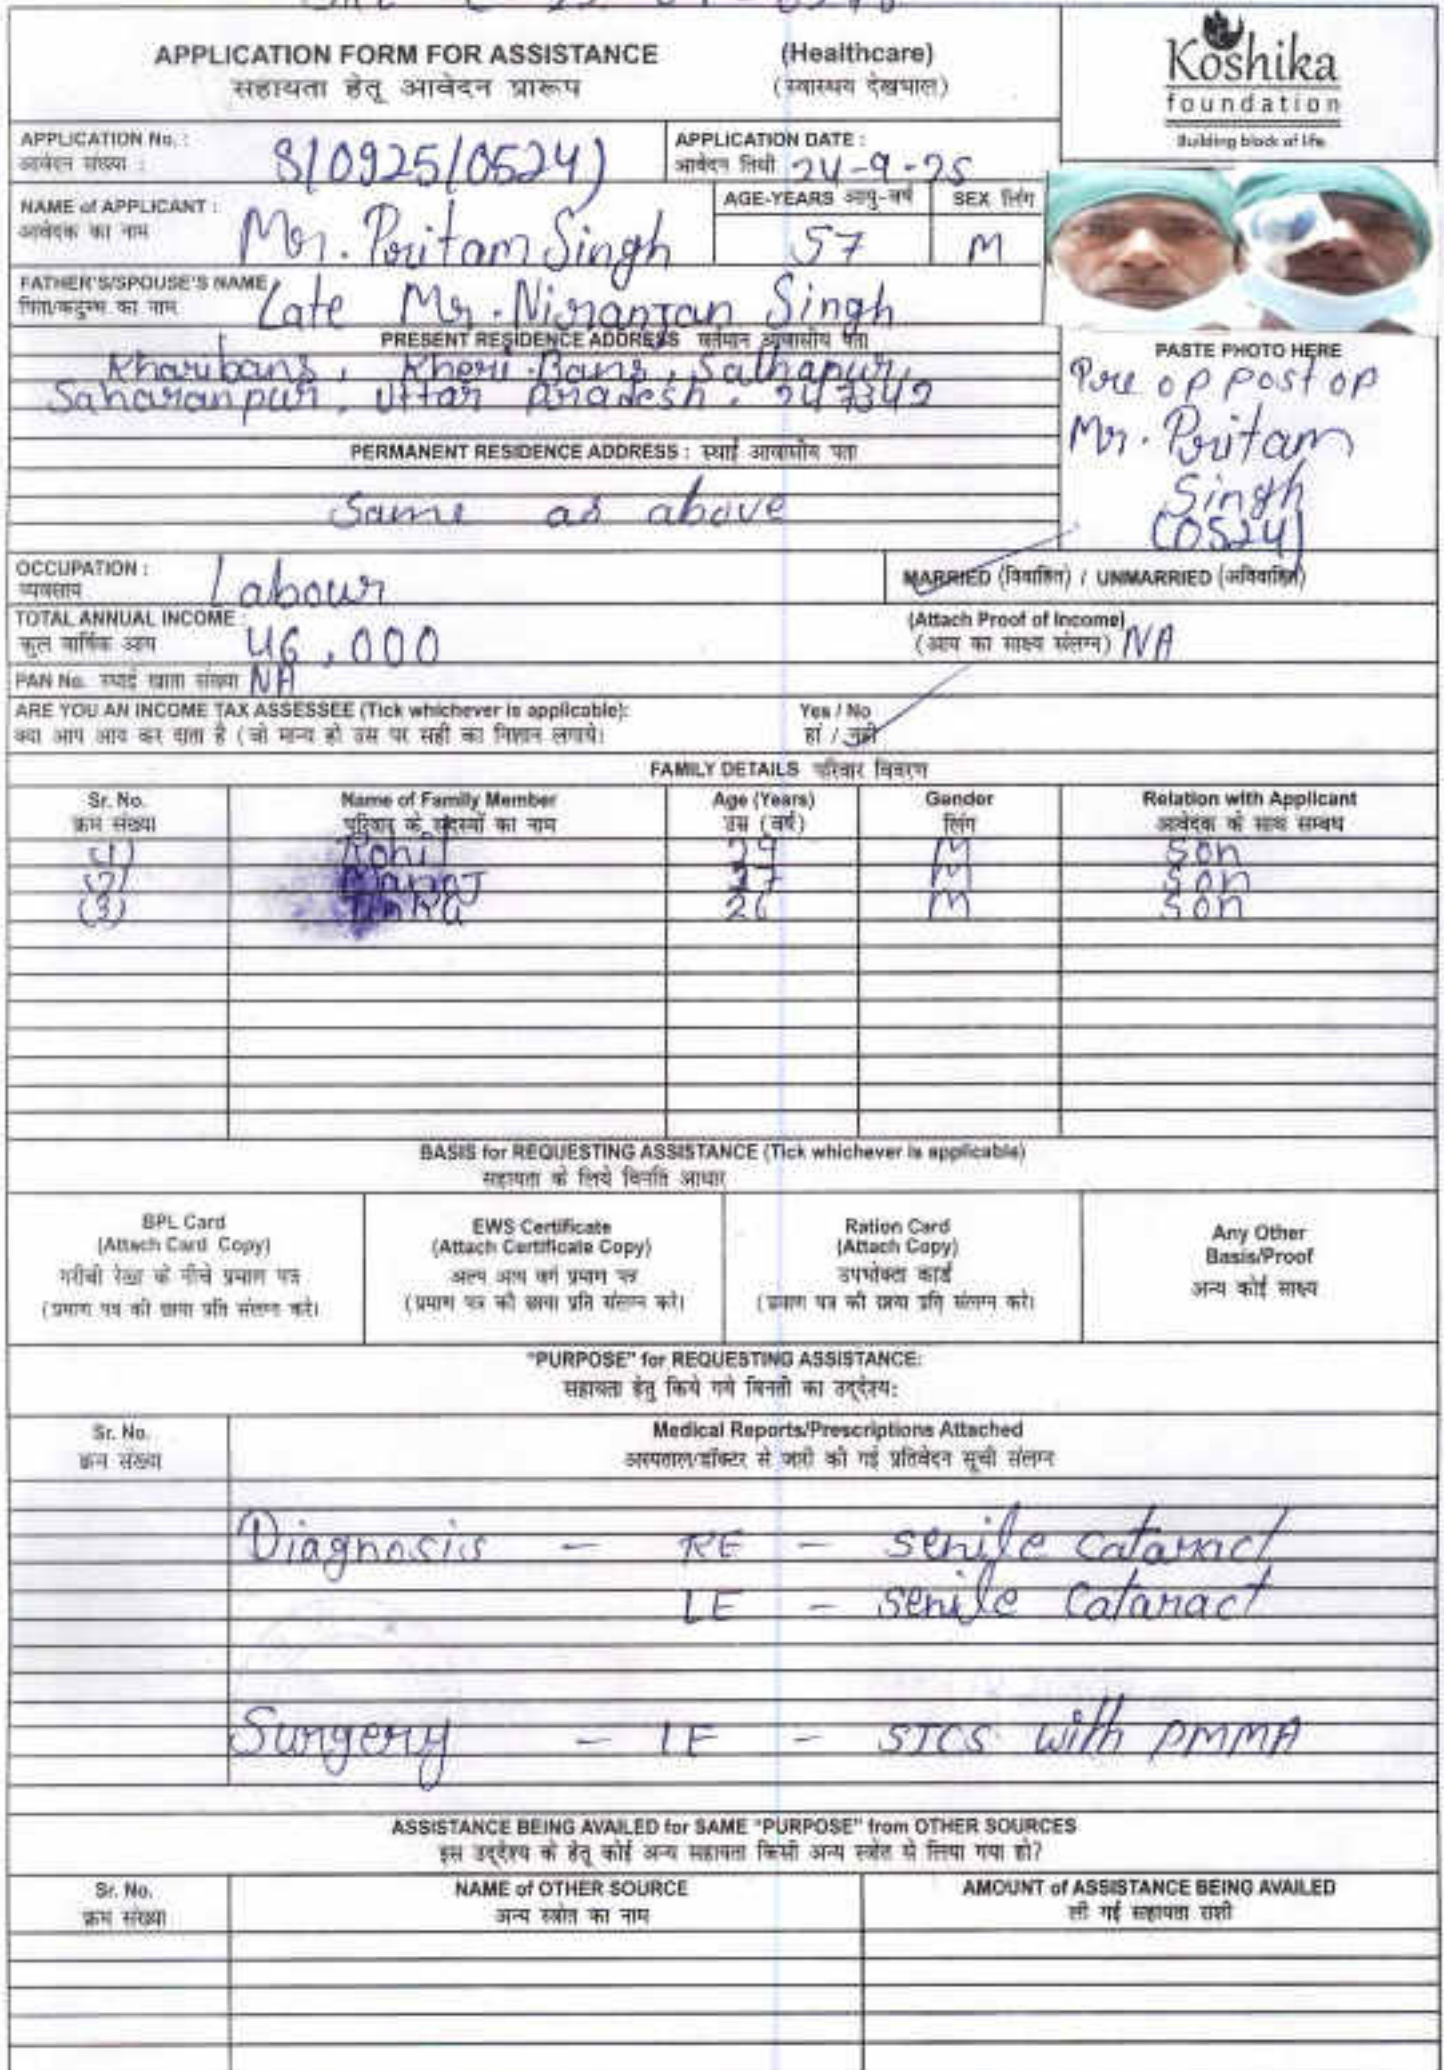 APPLICATION FORM FOR ASSISTANCE (Healthcare)
सहायता हेतू आवेदन प्रारूप (स्वास्थ्य देखभाल)
Koshika
foundation
Building block of life
APPLICATION No. :
आवेदन संख्या :
S/0925/0524)
APPLICATION DATE :
आवेदन तिथी 24-9-25
NAME of APPLICANT :
आवेदक का नाम
Mr. Pritam Singh
AGE-YEARS आयु-वर्ष
57
SEX लिंग
M
FATHER'S/SPOUSE'S NAME
Late Mr. Niranjan Singh
PRESENT RESIDENCE ADDRESS वर्तमान आवासीय पता
Kharibans, Kheri Bans, Salhapur,
Saharanpur, Uttar Pradesh. 247342
PASTE PHOTO HERE
Pre op post op
Mr. Pritam
Singh
(0524)
PERMANENT RESIDENCE ADDRESS : स्थाई आवासीय पता
Same as above
OCCUPATION :
व्यवसाय
Labour
MARRIED (विवाहित) / UNMARRIED (अविवाहित)
TOTAL ANNUAL INCOME :
कुल वार्षिक आय
46,000
(Attach Proof of Income)
(आय का साक्ष्य संलग्न) NA
PAN No. स्थाई खाता संख्या NA
ARE YOU AN INCOME TAX ASSESSEE (Tick whichever is applicable): Yes / No
क्या आप आय कर दाता है (जो मान्य हो उस पर सही का निशान लगाये। हां / नही
FAMILY DETAILS परिवार विवरण
Sr. No. Name of Family Member Age (Years) Gender Relation with Applicant
क्रम संख्या परिवार के सदस्यों का नाम उम्र (वर्ष) लिंग आवेदक के साथ सम्बध
(1) Rohit 29 M Son
(2) Manoj 27 M Son
(3) 26 M Son
BASIS for REQUESTING ASSISTANCE (Tick whichever is applicable)
सहायता के लिये विनति आधार
BPL Card
(Attach Card Copy)
गरीबी रेखा के नीचे प्रमाण पत्र
(प्रमाण पत्र की छाया प्रति संलग्न करे।
EWS Certificate
(Attach Certificate Copy)
अल्प आय वर्ग प्रमाण पत्र
(प्रमाण पत्र की छाया प्रति संलग्न करे।
Ration Card
(Attach Copy)
उपभोक्ता कार्ड
(प्रमाण पत्र की छाया प्रति संलग्न करे।
Any Other
Basis/Proof
अन्य कोई साक्ष्य
"PURPOSE" for REQUESTING ASSISTANCE:
सहायता हेतु किये गये बिनती का उद्देश्य:
Sr. No. Medical Reports/Prescriptions Attached
क्रम संख्या अस्पताल/डॉक्टर से जारी की गई प्रतिवेदन सूची संलग्न
Diagnosis - RE - senile cataract
LE - senile cataract
Surgery - LE - SICS with PMMA
ASSISTANCE BEING AVAILED for SAME "PURPOSE" from OTHER SOURCES
इस उद्देश्य के हेतू कोई अन्य सहायता किसी अन्य स्त्रोत से लिया गया हो?
Sr. No. NAME of OTHER SOURCE AMOUNT of ASSISTANCE BEING AVAILED
क्रम संख्या अन्य स्त्रोत का नाम ली गई सहायता राशी